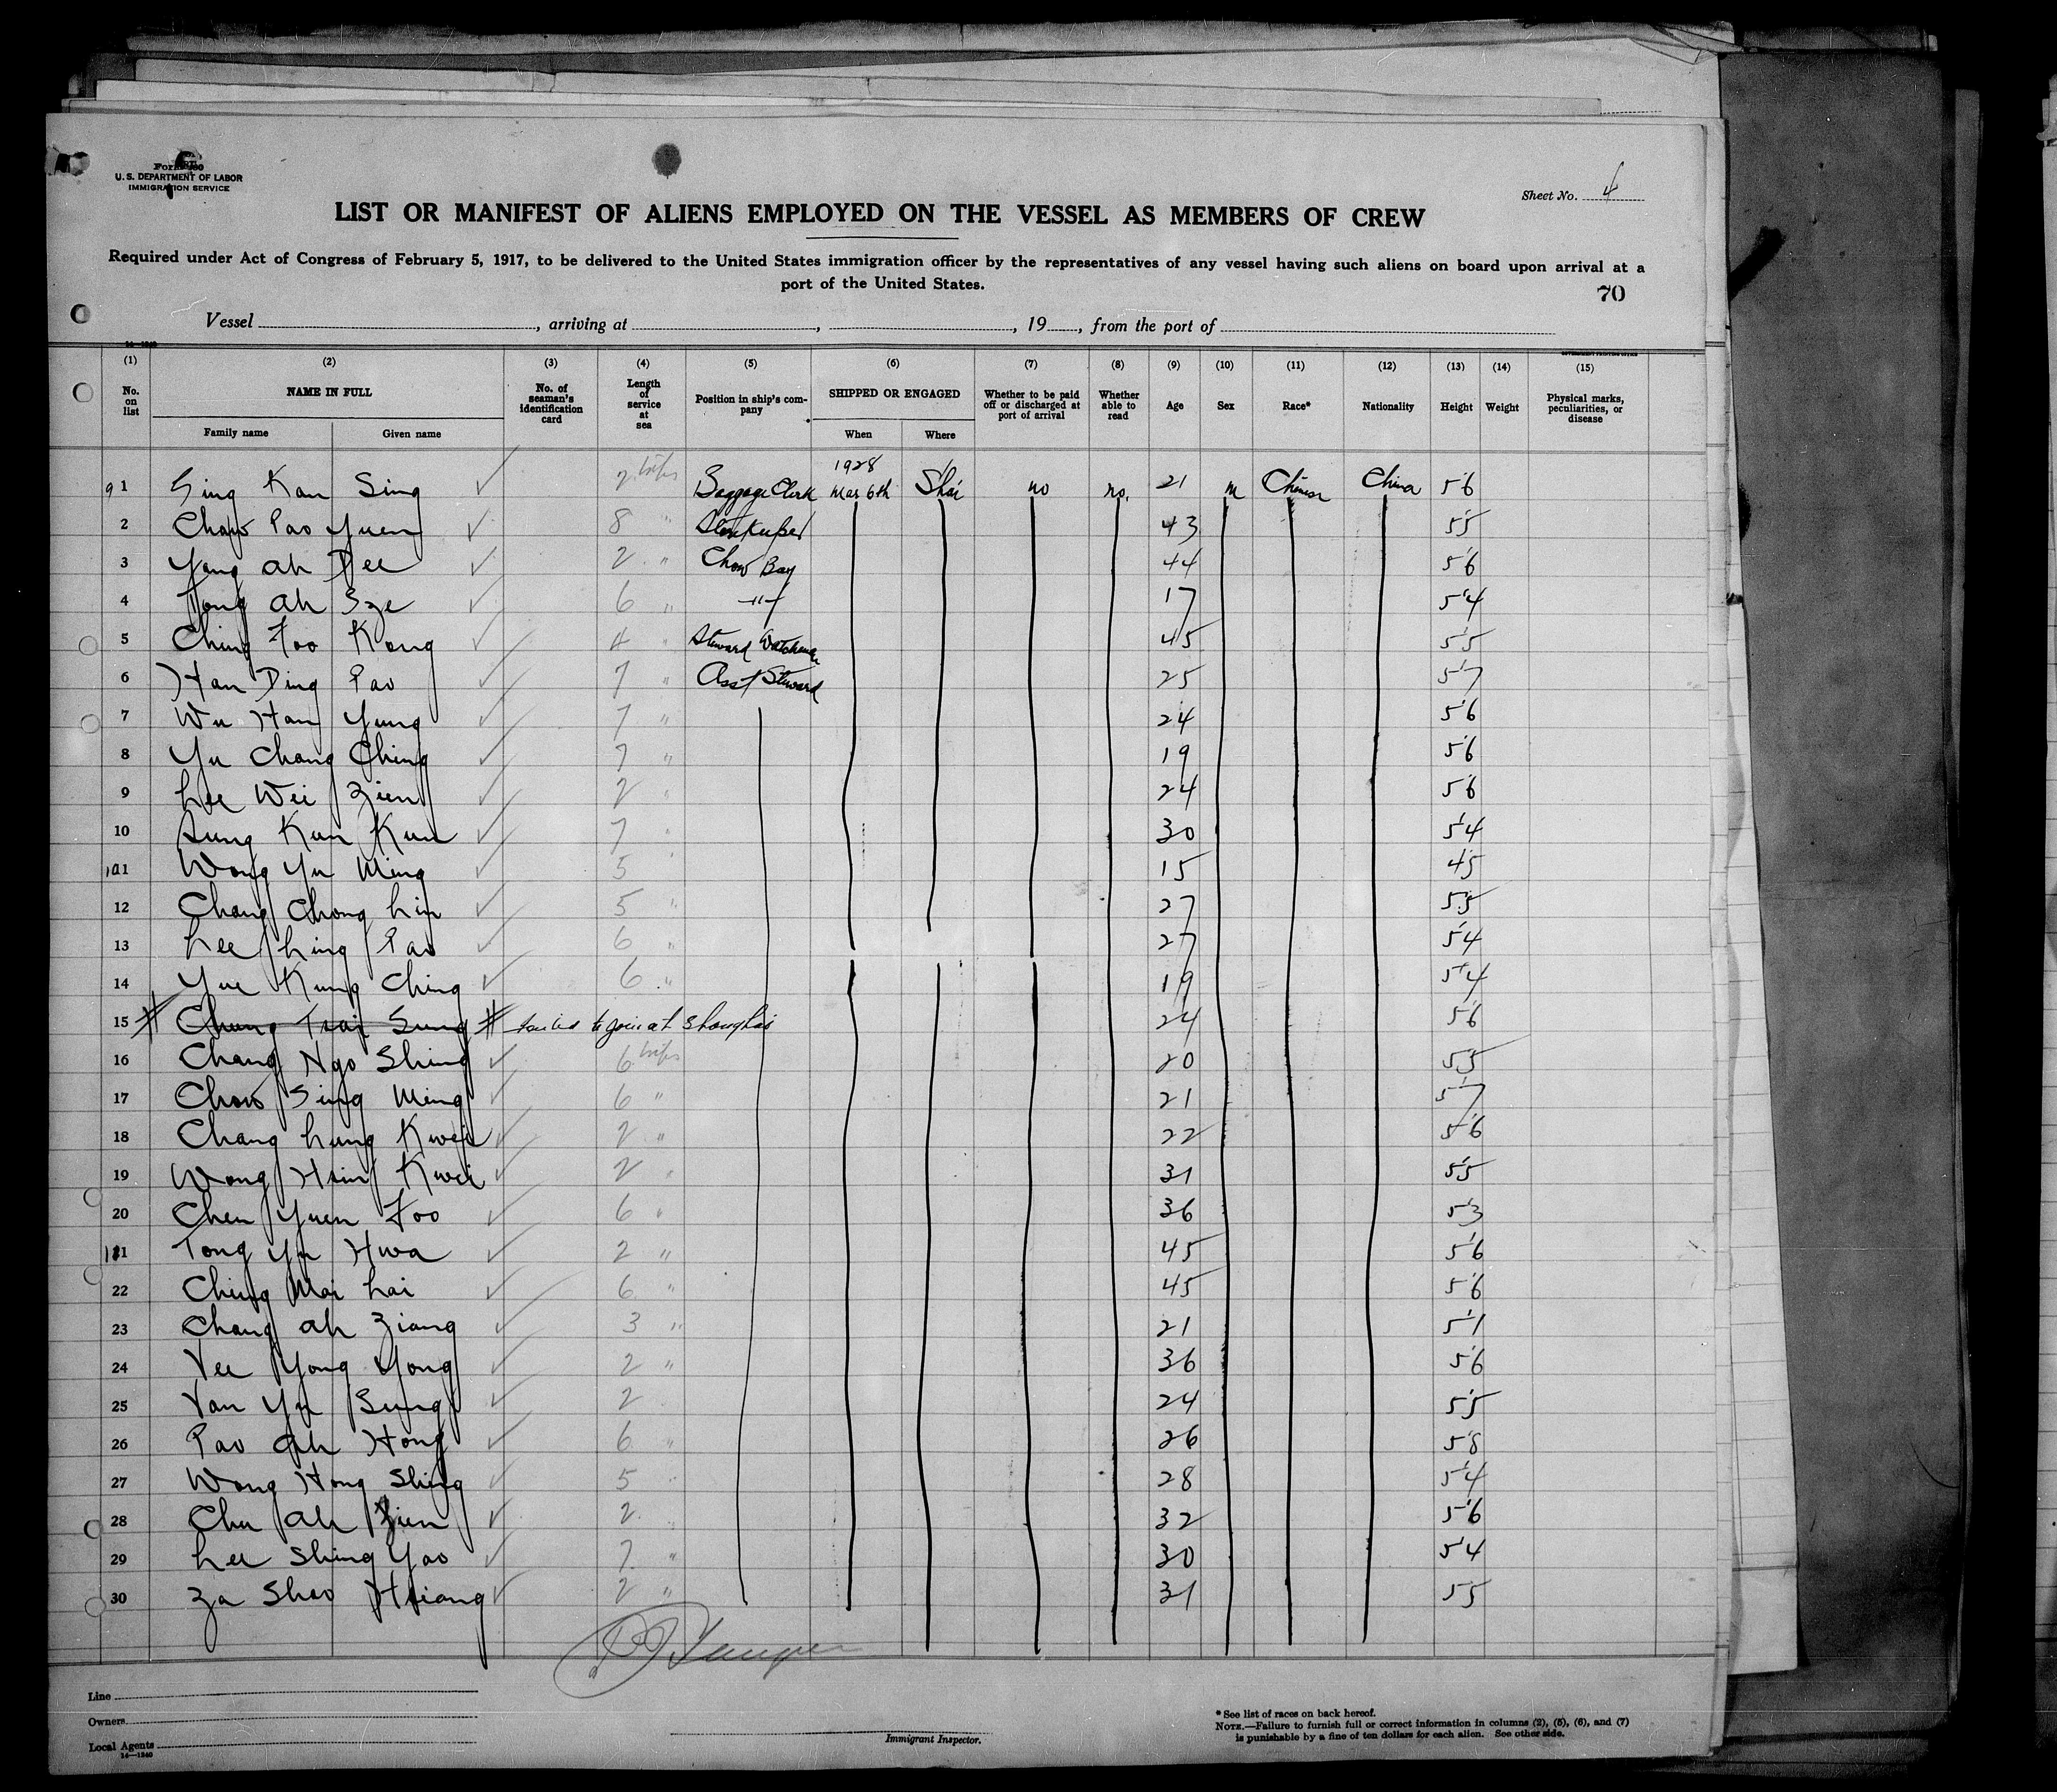 U. S. DEPARTMENT OF LABOR
IMMIGRATION SERVICE
Sheet No. 4
LIST OR MANIFEST OF ALIENS EMPLOYED ON THE VESSEL AS MEMBERS OF CREW
Required under Act of Congress of February 5, 1917, to be delivered to the United States immigration officer by the representatives of any vessel having such aliens on board upon arrival at a
port of the United States.
70
Vessel , arriving at , , 19 , from the port of
(1) (2) (3) (4) (5) (6) (7) (8) (9) (10) (11) (12) (13) (14) (15)
No. on list NAME IN FULL No. of seaman's identification card Length of service at sea Position in ship's company SHIPPED OR ENGAGED Whether to be paid off or discharged at port of arrival Whether able to read Age Sex Race* Nationality Height Weight Physical marks, peculiarities, or disease
Family name Given name When Where
1928
91 Sing Kan Sing 2 trips Baggage Clerk Mar 6th Shai no no. 21 m Chinese China 5'6
2 Chow Pao Yuen 8 " Storekeeper 43 5'5
3 Yang Ah Dee 2 " Chow Boy 44 5'6
4 Tong Ah Sze 6 " -"- 17 5'4
5 Ching Foo Kong 4 " Steward Watchman 45 5'5
6 Han Ding Pao 7 " Asst Steward 25 5'7
7 Wu Han Yung 7 " 24 5'6
8 Yu Chang Ching 7 " 19 5'6
9 Lee Wei Zien 2 " 24 5'6
10 Sung Kun Kun 7 " 30 5'4
101 Wong Yu Ming 5 " 15 4'5
12 Chang Chong Lin 5 " 27 5'5
13 Lee Ling Pao 6 " 27 5'4
14 Yue Kung Ching 6 " 19 5'4
15 # Chung Tsai Sung # failed to join at Shanghai 24 5'6
16 Chang Ngo Shing 6 trips 20 5'5
17 Chow Sing Ming 6 " 21 5'7
18 Chang Lung Kwei 2 " 22 5'6
19 Wong Hsin Kwei 2 " 31 5'5
20 Chen Yuen Foo 6 " 36 5'3
111 Tong Yu Hwa 2 " 45 5'6
22 Ching Mai Lai 6 " 45 5'6
23 Chang Ah Ziang 3 " 21 5'1
24 Vee Yong Yong 2 " 36 5'6
25 Van Yu Sung 2 " 24 5'5
26 Pao Ah Hong 6 " 26 5'8
27 Wong Hong Shing 5 " 28 5'4
28 Chu Ah Zien 2 " 32 5'6
29 Lee Shing Yao 7 " 30 5'4
30 Za Shao Hsiang 2 " 31 5'5
Line
Owners
Local Agents
14—1240
Immigrant Inspector.
* See list of races on back hereof.
NOTE.—Failure to furnish full or correct information in columns (2), (5), (6), and (7)
is punishable by a fine of ten dollars for each alien. See other side.